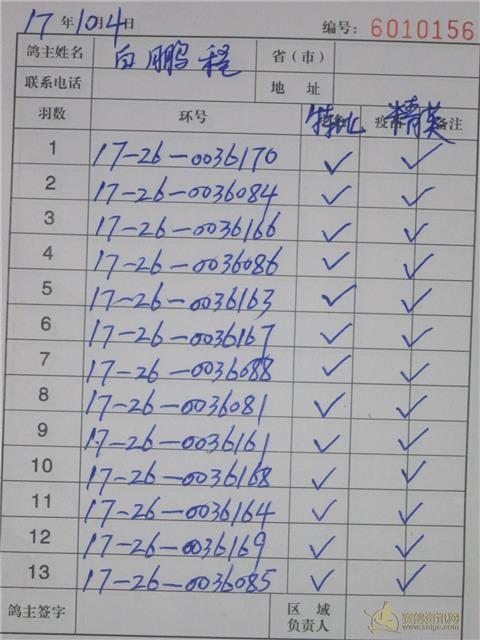 17年10月4日 编号: 6010156
鸽主姓名 白鹏程 省(市)
联系电话 地址
羽数 环号 特比 疫苗 精英 备注
1 17-26-0036170 ✓ ✓
2 17-26-0036084 ✓ ✓
3 17-26-0036166 ✓ ✓
4 17-26-0036086 ✓ ✓
5 17-26-0036163 ✓ ✓
6 17-26-0036167 ✓ ✓
7 17-26-0036088 ✓ ✓
8 17-26-0036081 ✓ ✓
9 17-26-0036161 ✓ ✓
10 17-26-0036168 ✓ ✓
11 17-26-0036164 ✓ ✓
12 17-26-0036169 ✓ ✓
13 17-26-0036085 ✓ ✓
鸽主签字 区域
负责人
赛鸽资讯网
www.saige.com